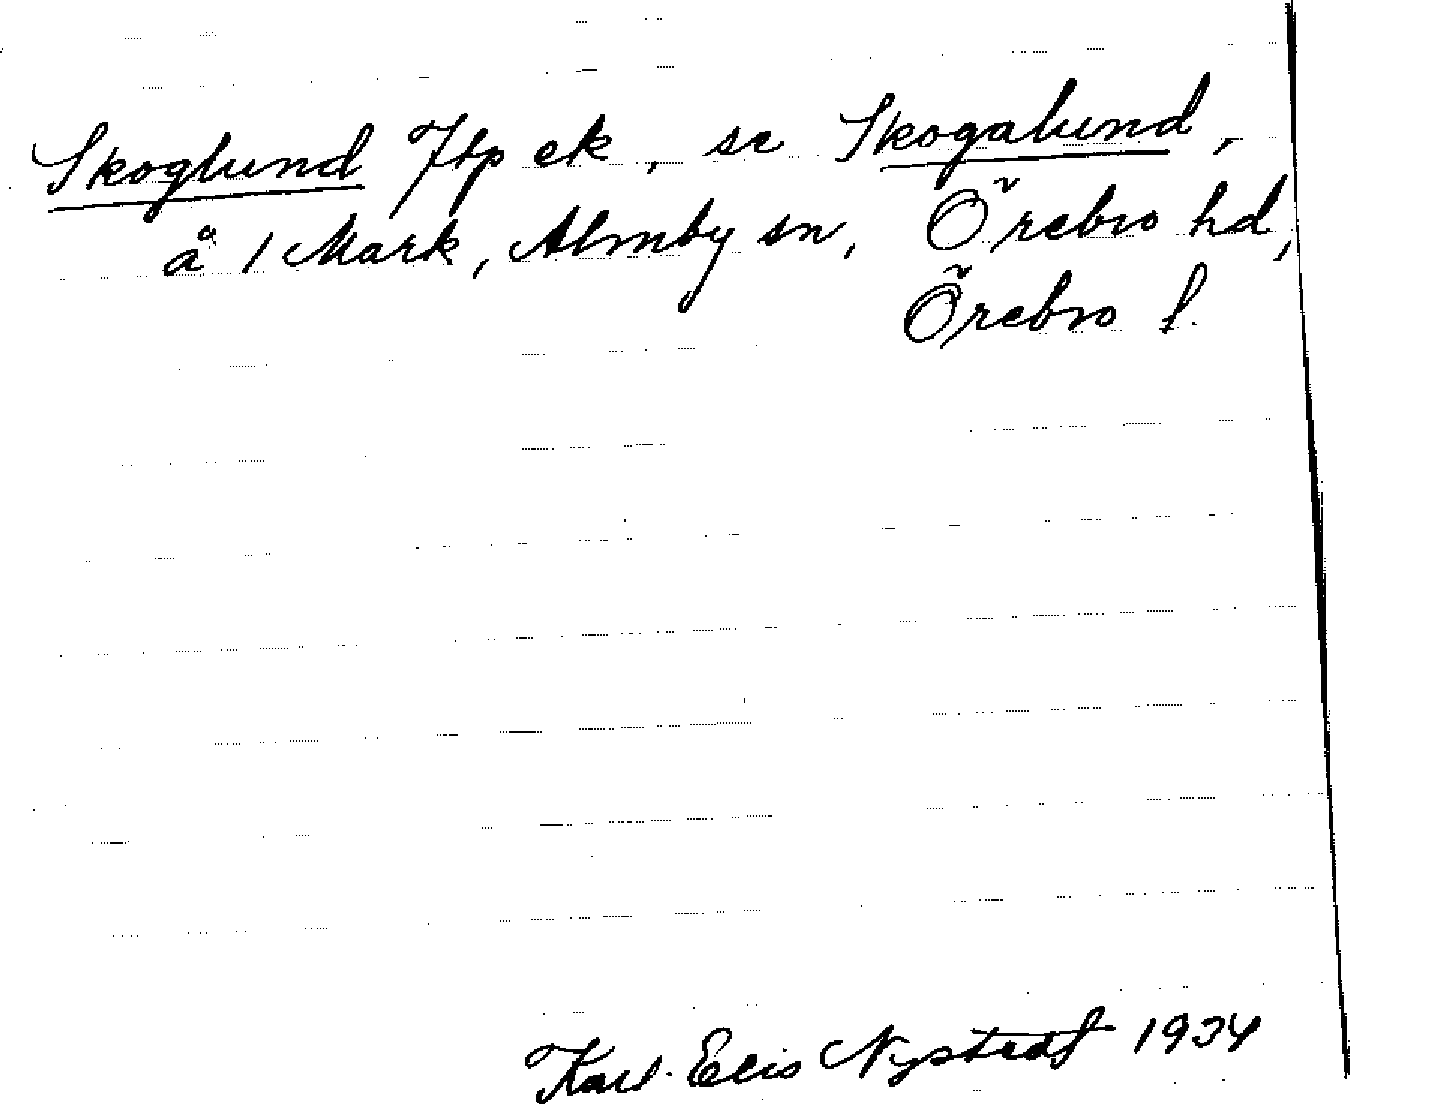 Skoglund Jfp ek, se Skogalund,
å 1 Mark, Almby sn, Örebro hd,
Örebro l.
Karl-Elis Nystedt 1934